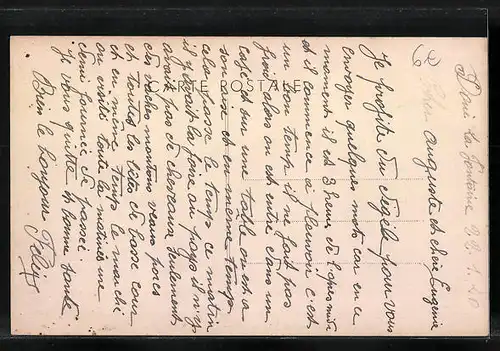 Doué la Fontaine 28.1.20
Cher Auguste et chère Eugénie
Je profite du dégel pour vous
envoyer quelques mots car en ce
moment il est 3 heures de l'après midi
et il commence à pleuvoir c'est
un bon temps il ne fait pas
froid alors on est entré dans un
café et sur une table on est a
son aise et en meme temps
cela passe le temps ce matin
il y avait la foire au pays il n'y
avait pas de chevaux seulement
des vaches moutons veaux porcs
et toutes les bêtes de basse cour
et en même temps le marché
on visite toute la matinée une
demi journée de passée.
Je vous quitte et bonne santé
Bien le bonjour Félix
CARTE POSTALE